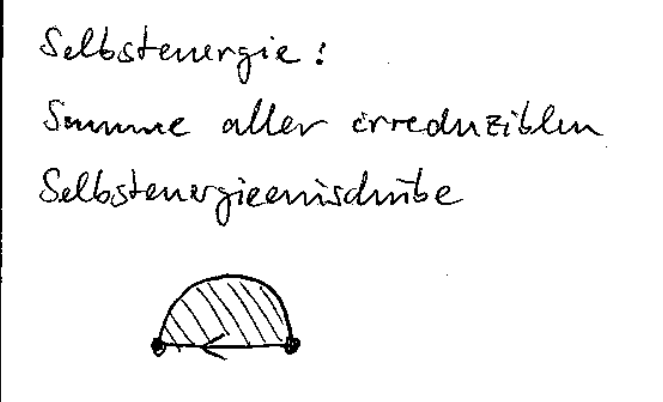 Selbstenergie:
Summe aller irreduziblen
Selbstenergieeinschübe